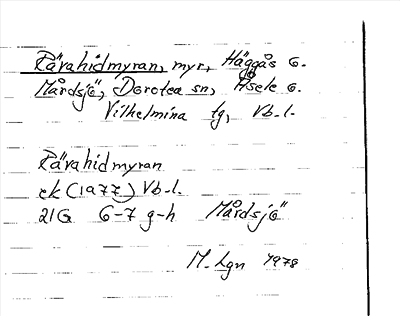 Rävahidmyran, myr, Häggås 6.
Mårdsjö, Dorotea sn, Åsele 6.
Vilhelmina tg, Vb. l.
Rävahidmyran
ek (1977) Vb. l.
21G 6-7 g-h Mårdsjö
M. Lgn 1978